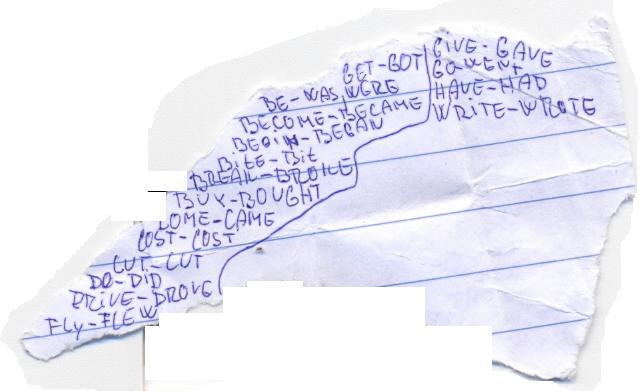 GET-GOT
BE-WAS, WERE
BECOME-BECAME
BEGIN-BEGAN
BitE-Bit
BREAK-BROKE
BUY-BOUGHT
COME-CAME
COST-COST
CUT-CUT
DO-DID
DRIVE-DROVE
FLy-FLEW
GIVE-GAVE
GOWENt
HAVE-HAD
WRITE-WROTE